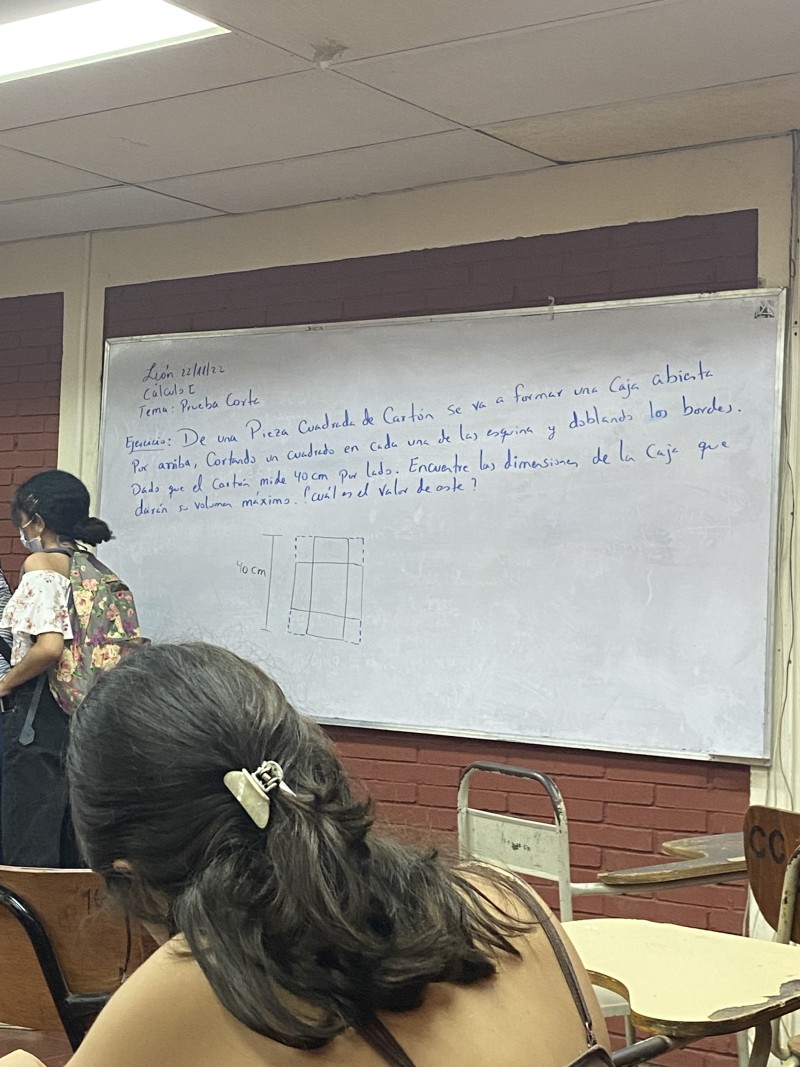 León 22/11/22
Cálculo I
Tema: Prueba Corta
Ejercicio: De una Pieza Cuadrada de Cartón se va a formar una Caja abierta
Por arriba, Cortando un cuadrado en cada una de las esquina y doblando los bordes.
Dado que el cartón mide 40 cm por lado. Encuentre las dimensiones de la Caja que
darán su volumen máximo. ¿cuál es el valor de este?
40 cm
CC